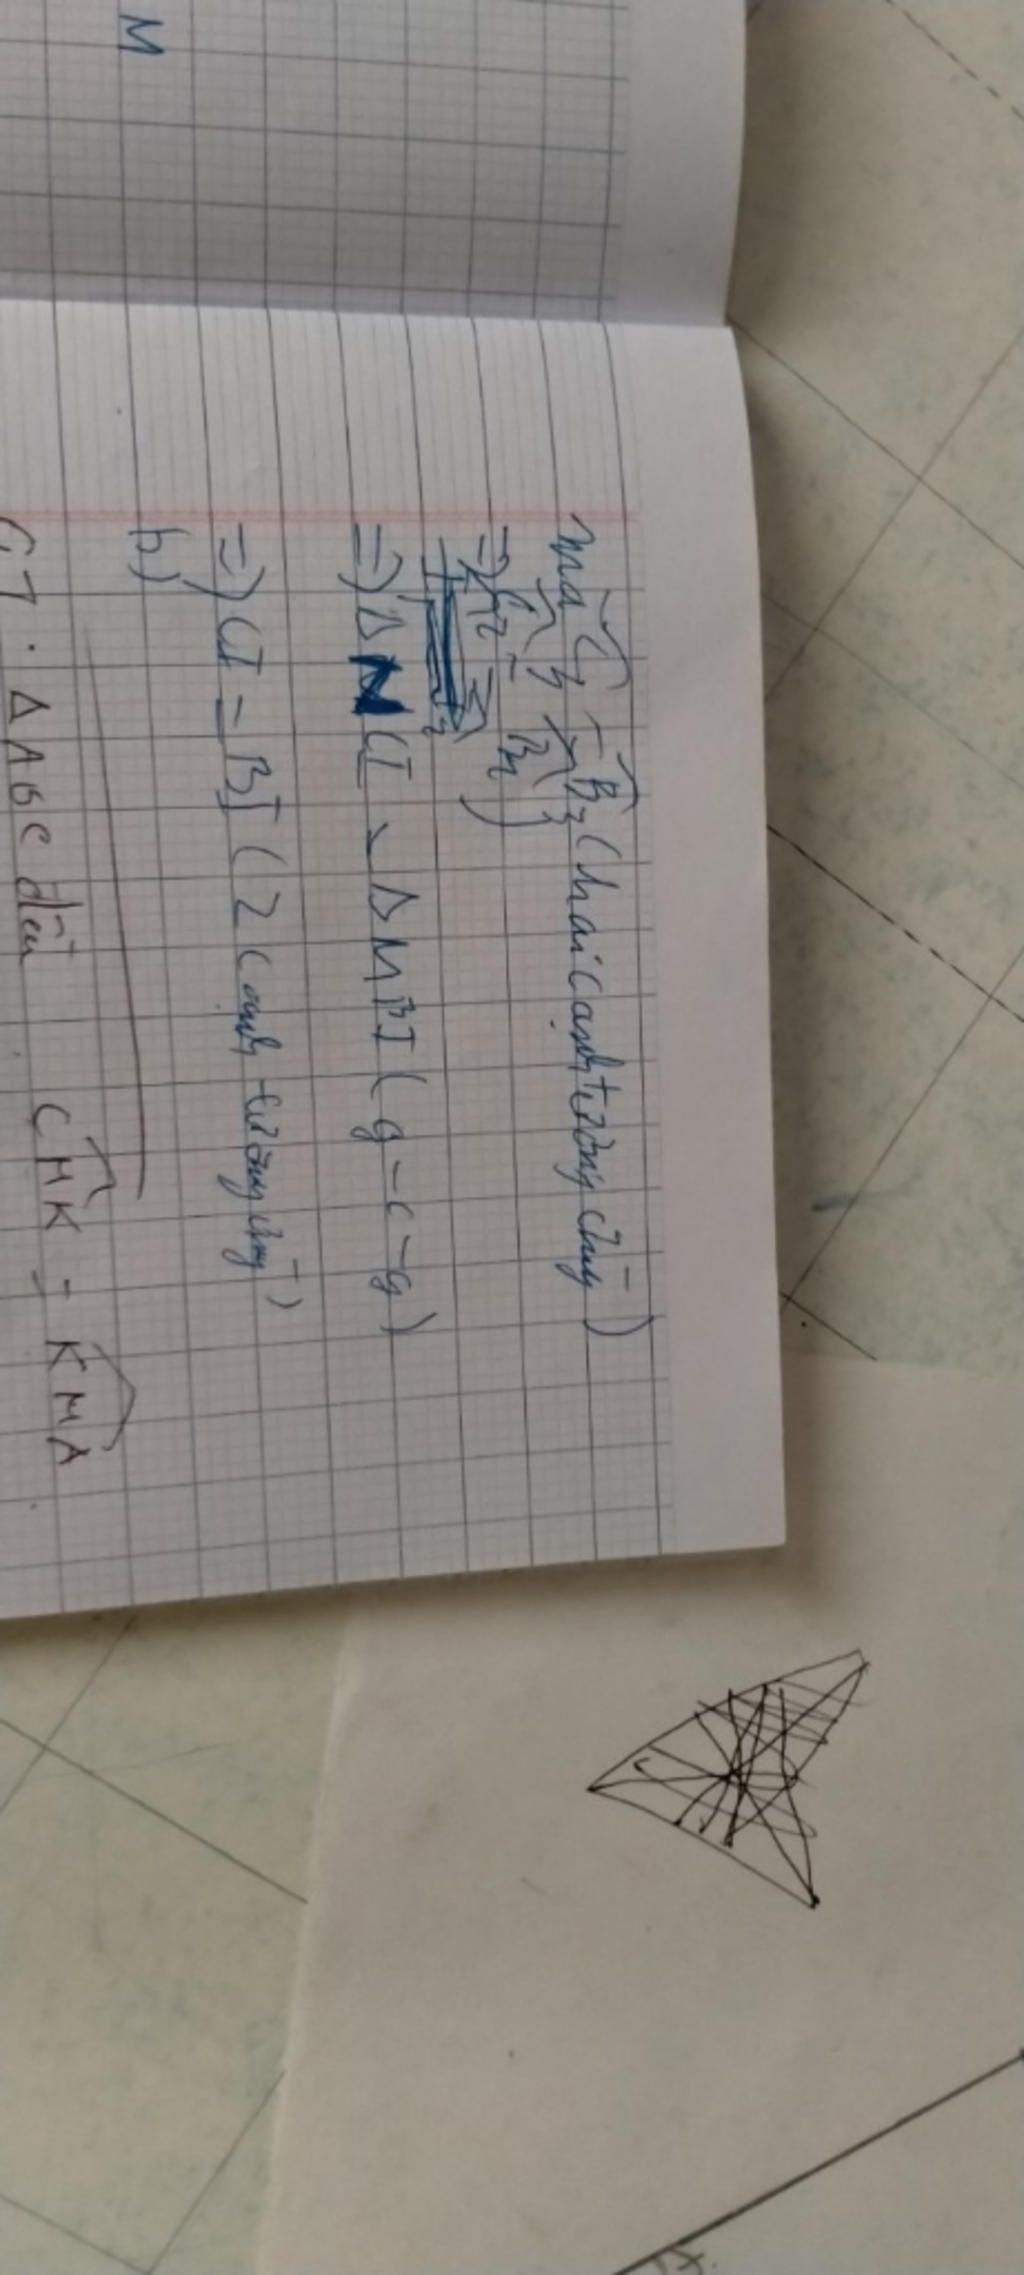 mà Ĉ₁ = B̂₃ (hai cạnh tương ứng)
=> Ĉ₂ = B̂₁
=> Δ NCI = Δ MBI (g-c-g)
=> CI = BI (2 cạnh tương ứng)
b)
GT. ΔABC đều CMK = KMA
M